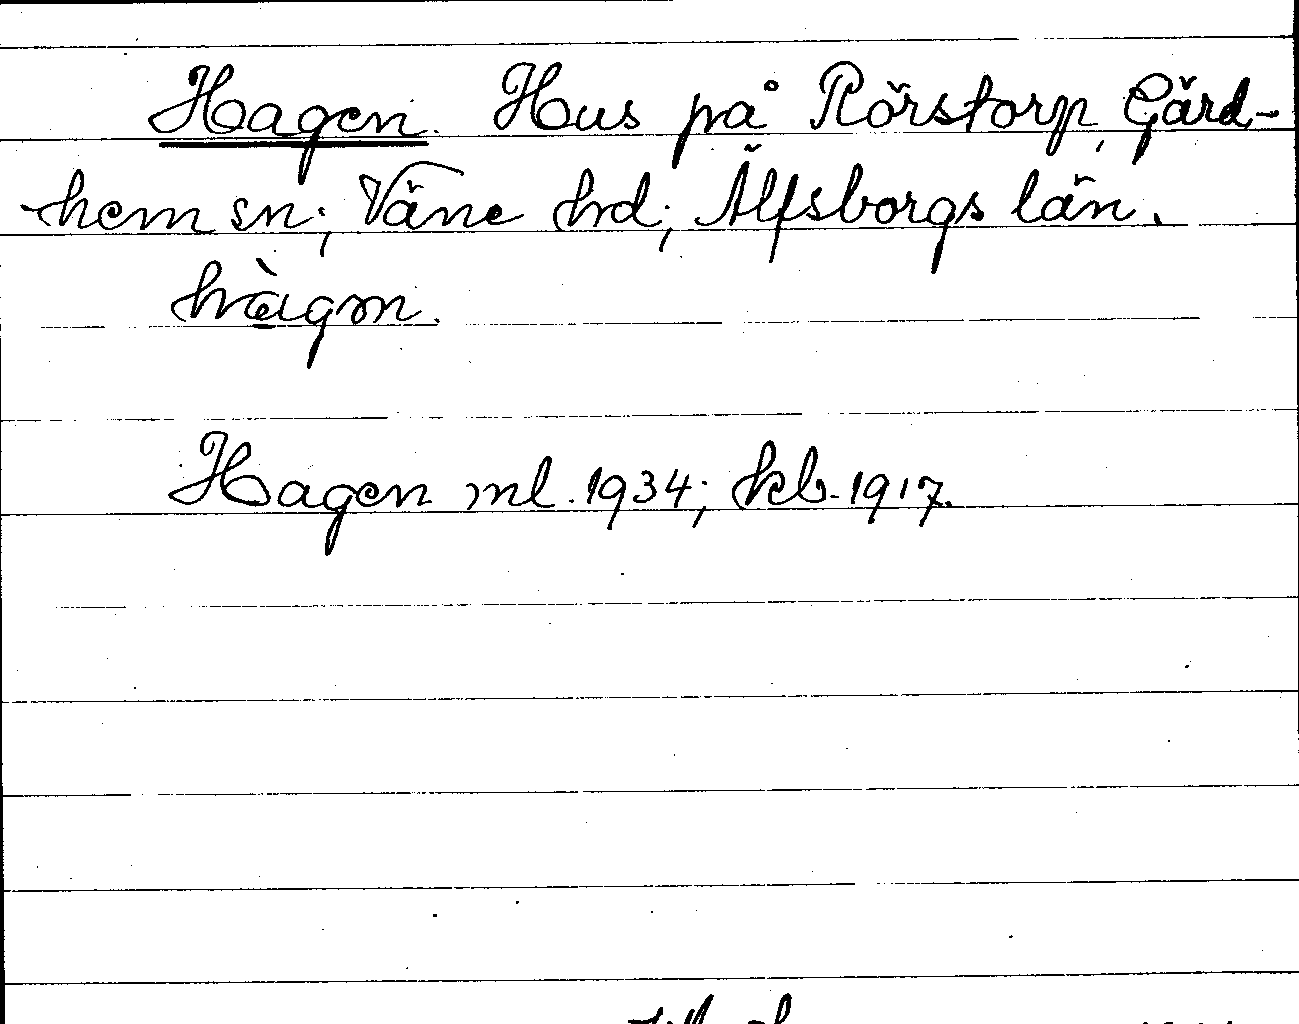 Hagen. Hus på Rörstorp, Gärd-
hem sn; Väne hd; Älfsborgs län.
hàgm.
Hagen ml. 1934; kb. 1917.